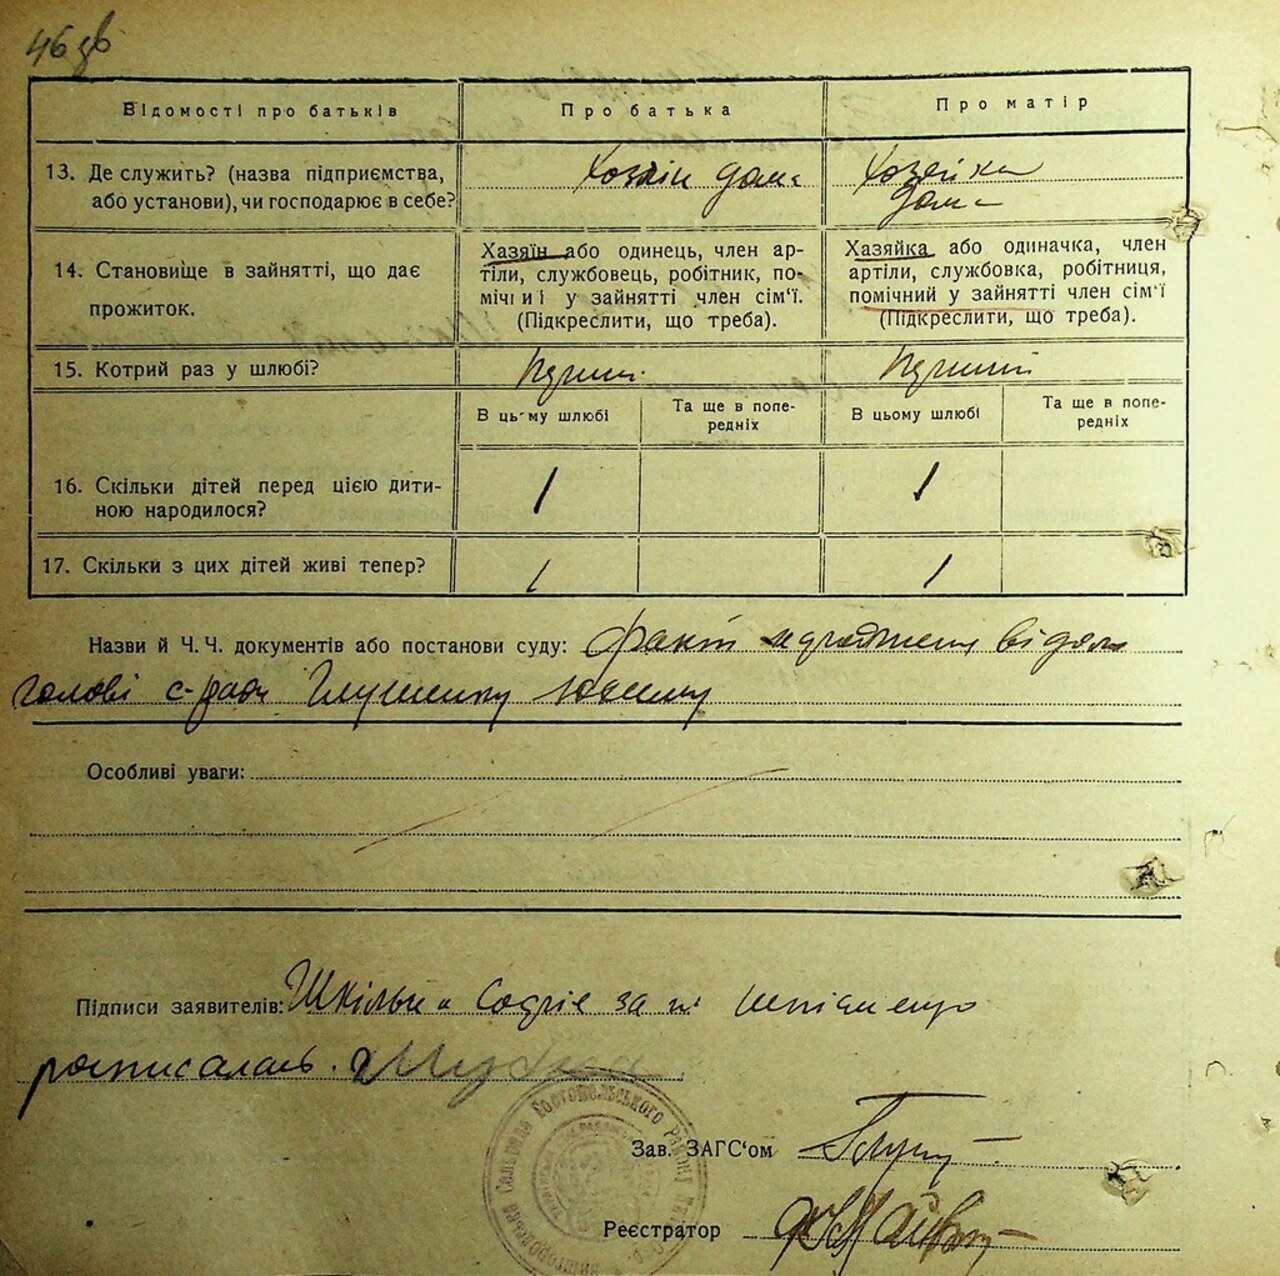 46 зв
Відомості про батьків
Про батька
Про матір
13. Де служить? (назва підприємства,
або установи), чи господарює в себе?
Хозяін дома
Хозяйка
дома
14. Становище в зайнятті, що дає
прожиток.
Хазяїн або одинець, член ар-
тіли, службовець, робітник, по-
мічний у зайнятті член сім'ї.
(Підкреслити, що треба).
Хазяйка або одиначка, член
артіли, службовка, робітниця,
помічний у зайнятті член сім'ї
(Підкреслити, що треба).
15. Котрий раз у шлюбі?
В цьому шлюбі
Та ще в попе-
редніх
В цьому шлюбі
Та ще в попе-
редніх
16. Скільки дітей перед цією дити-
ною народилося?
1
1
17. Скільки з цих дітей живі тепер?
1
1
Назви й Ч. Ч. документів або постанови суду: факт народження відом
голові с-ради Глушенку
Особливі уваги:
Підписи заявителів: Шкільна Софіє за
росписалась.
Зав. ЗАГС'ом
Реєстратор
Сельрада Гостомельського Району